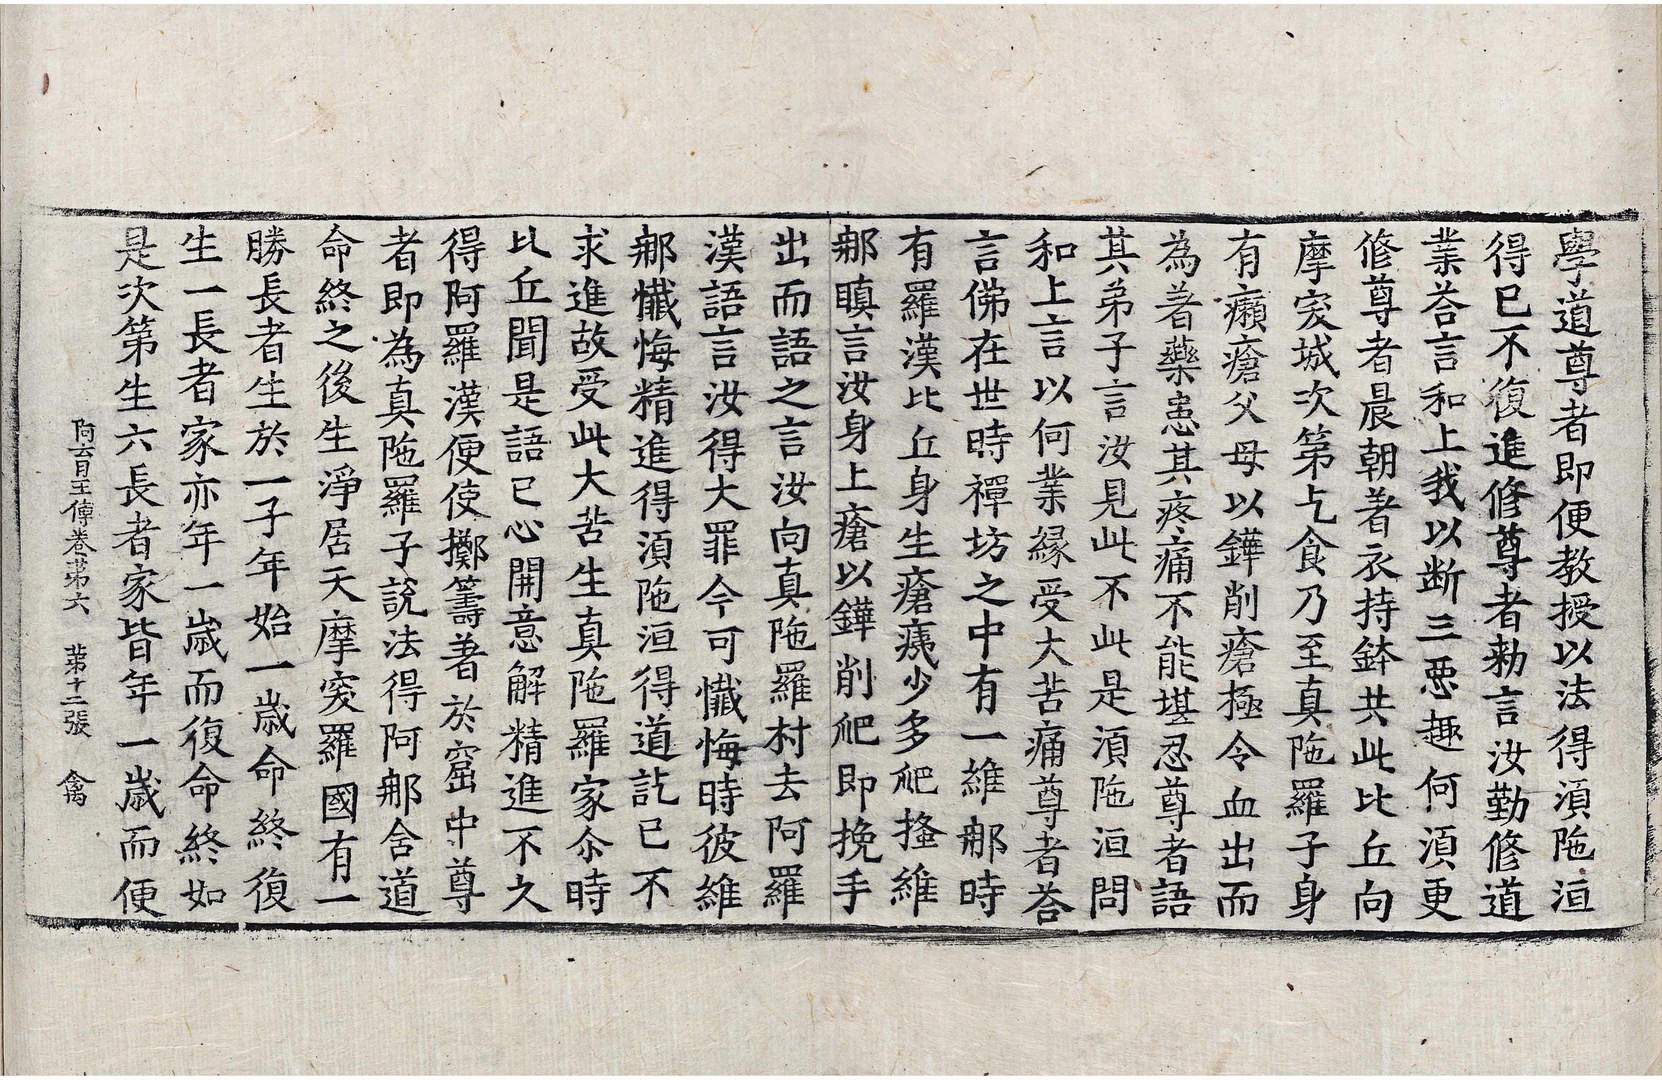 學道尊者即便教授以法得湏陁洹
得已不復進修尊者勑言汝勤修道
業荅言和上我以断三惡趣何湏更
修尊者晨朝著衣持鉢共此比丘向
摩突城次第乞食乃至真陁羅子身
有癩瘡父母以鏵削瘡極令血出而
為著藥患其疼痛不能堪忍尊者語
其弟子言汝見此不此是湏陁洹問
和上言以何業緣受大苦痛尊者荅
言佛在世時禪坊之中有一維那時
有羅漢比丘身生瘡痍少多爬搔維
那瞋言汝身上瘡以鏵削爬即挽手
出而語之言汝向真陁羅村去阿羅
漢語言汝得大罪今可懺悔時彼維
那懺悔精進得湏陁洹得道訖已不
求進故受此大苦生真陁羅家尒時
比丘聞是語已心開意解精進不久
得阿羅漢便使擲籌著於窟中尊
者即為真陁羅子說法得阿那含道
命終之後生淨居天摩突羅國有一
勝長者生於一子年始一歲命終復
生一長者家亦年一歲而復命終如
是次第生六長者家皆年一歲而便
阿育王傳卷第六 第十二張 禽